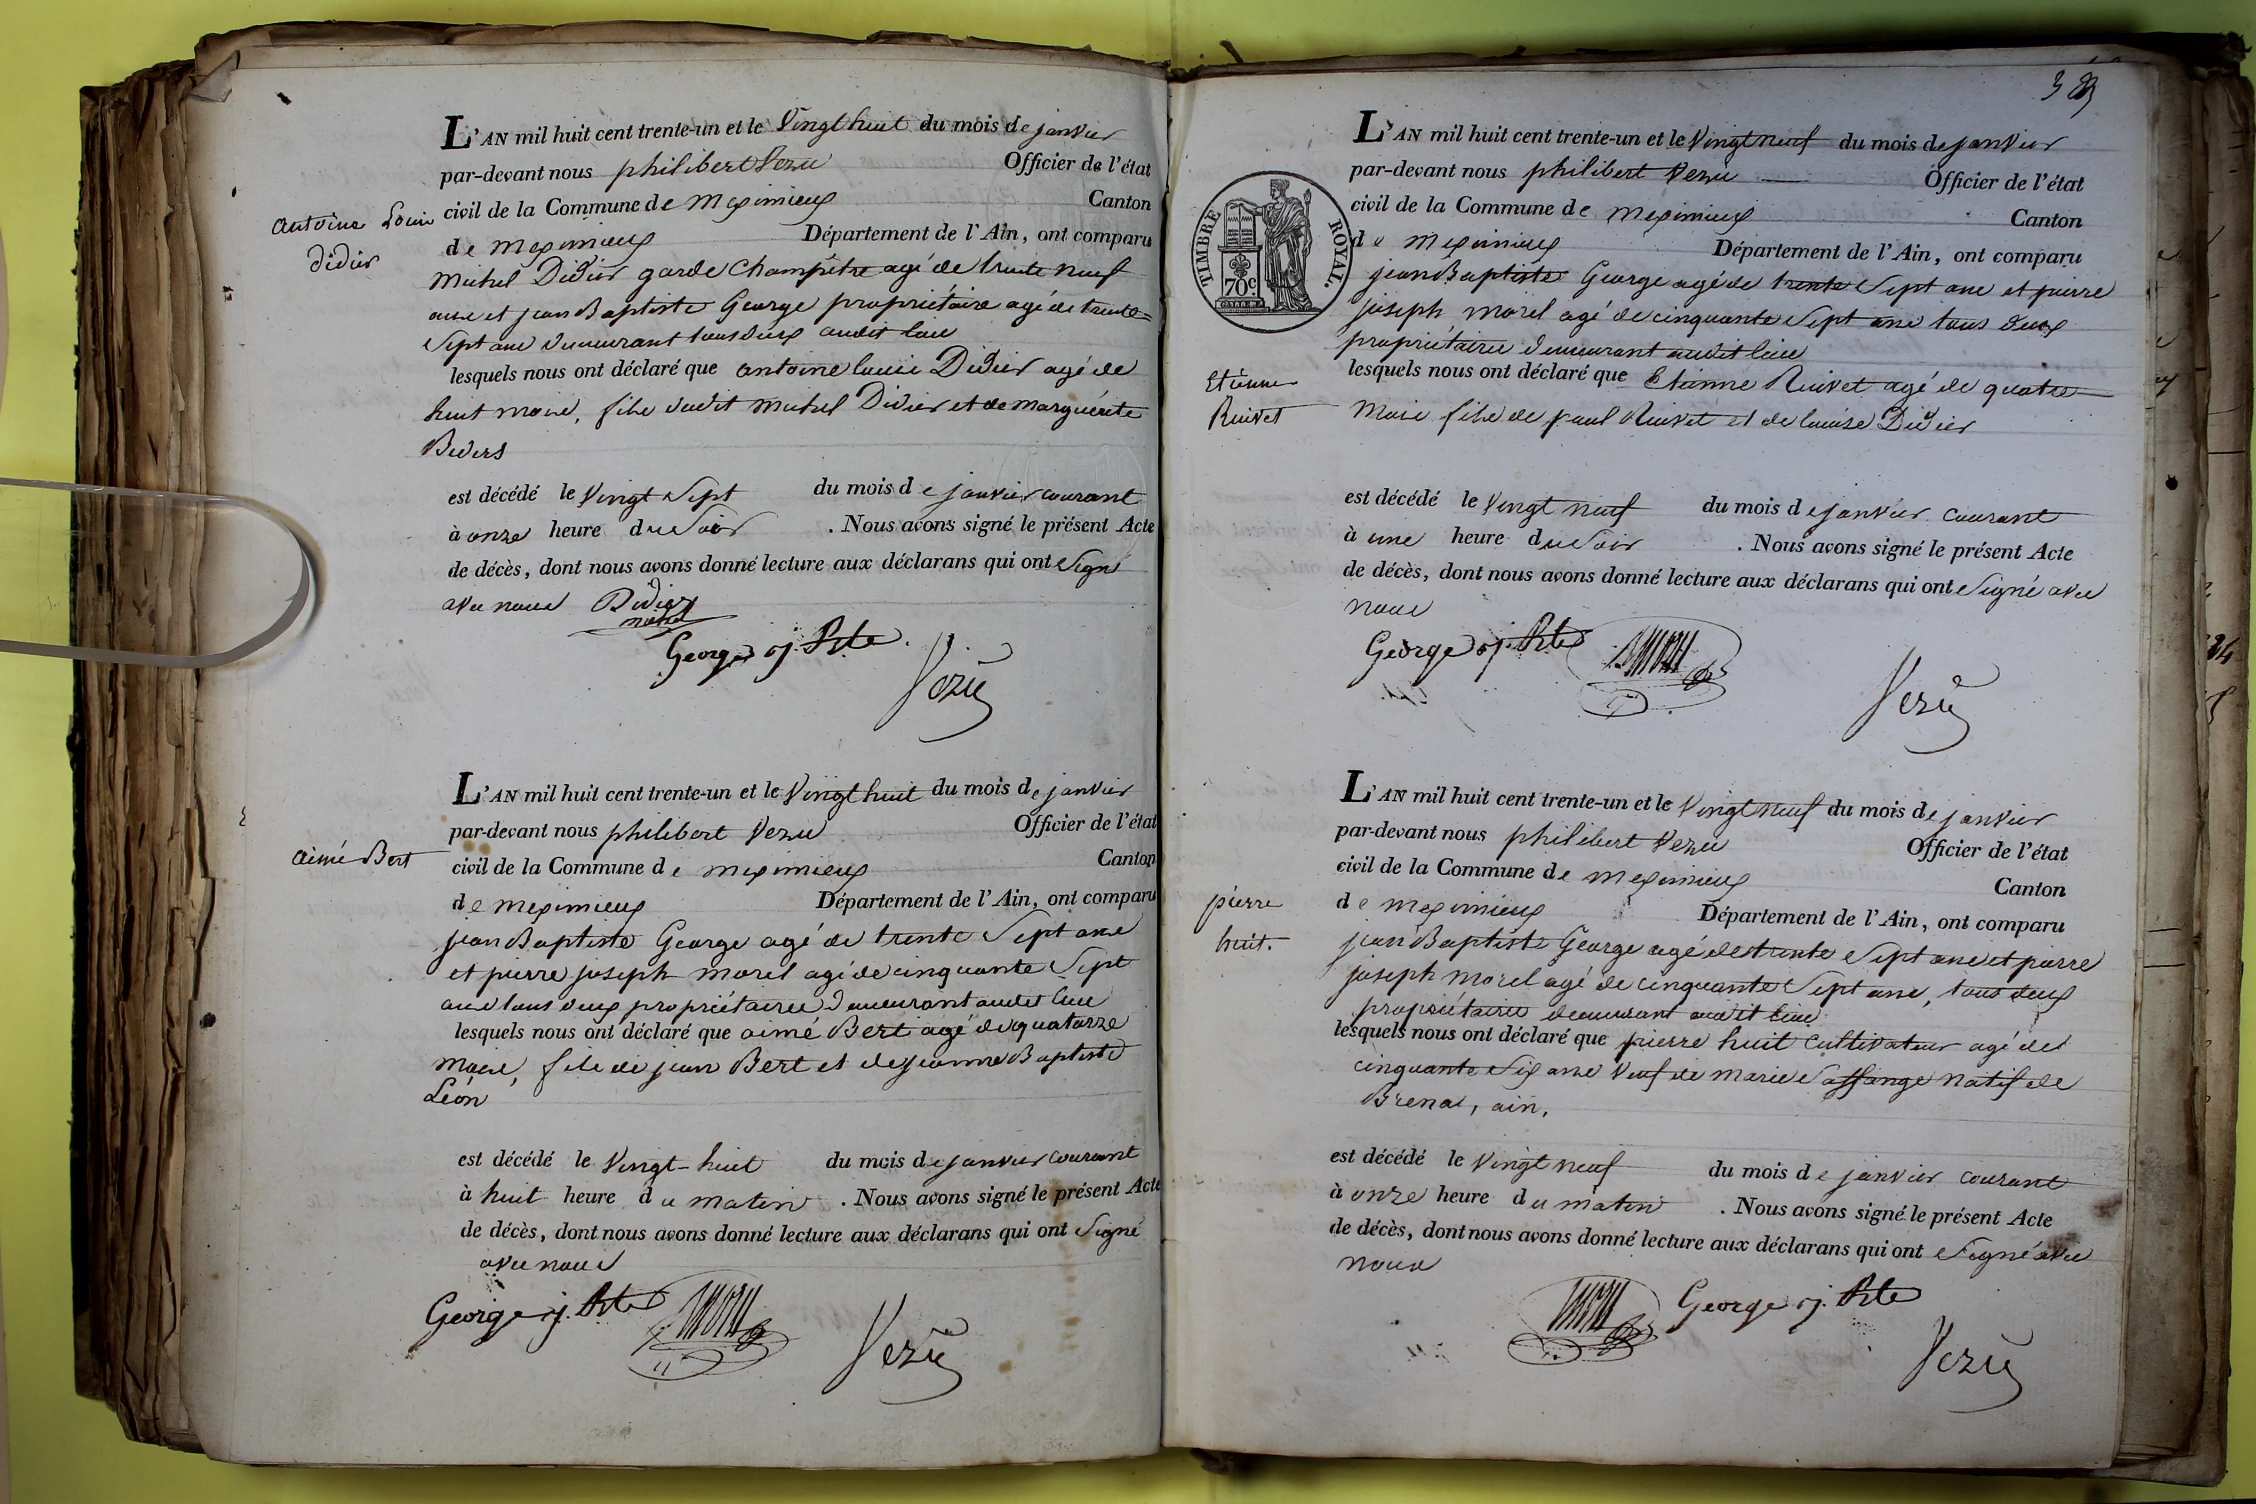 L'AN mil huit cent trente-un et le Vingt huit du mois de janvier
par-devant nous philibert Vezu Officier de l'état
civil de la Commune de meximieux Canton
de meximieux Département de l'Ain, ont comparu
Antoine Louis
Didier
Michel Didier garde champêtre agé de trente neuf
ans et jean Baptiste George propriétaire agé de trente=
Sept ans demeurant tous deux audit lieu
lesquels nous ont déclaré que antoine louis Didier agé de
huit mois, fils dudit Michel Didier et de marguérite
est décédé le Vingt Sept du mois de janvier courant
à onze heure du Soir . Nous avons signé le présent Acte
de décès, dont nous avons donné lecture aux déclarans qui ont Signé
avec nous Didier
michel
George j. Bte
Vezu
L'AN mil huit cent trente-un et le Vingt huit du mois de janvier
par-devant nous philibert Vezu Officier de l'état
aimé Bert
civil de la Commune de meximieux Canton
de meximieux Département de l'Ain, ont comparu
jean Baptiste George agé de trente Sept ans
et pierre joseph morel agé de cinquante Sept
ans tous deux propriétaires demeurant audit lieu
lesquels nous ont déclaré que aimé Bert agé de quatorze
mois, fils de jean Bert et de jeanne Baptiste
Léon
est décédé le Vingt-huit du mois de janvier courant
à huit heure du matin . Nous avons signé le présent Acte
de décès, dont nous avons donné lecture aux déclarans qui ont Signé
avec nous
George j. Bte
Vezu
L'AN mil huit cent trente-un et le Vingt neuf du mois de janvier
par-devant nous philibert Vezu Officier de l'état
civil de la Commune de meximieux Canton
de meximieux Département de l'Ain, ont comparu
TIMBRE ROYAL.
70c.
jean Baptiste George agé de trente Sept ans et pierre
joseph morel agé de cinquante Sept ans tous deux
propriétaires demeurant audit lieu
Etienne
Ruivet
lesquels nous ont déclaré que Etienne Ruivet agé de quatre
mois fils de paul Ruivet et de louise Didier
est décédé le Vingt neuf du mois de janvier courant
à une heure du Soir . Nous avons signé le présent Acte
de décès, dont nous avons donné lecture aux déclarans qui ont Signé avec
nous
George j. Bte
Vezu
L'AN mil huit cent trente-un et le Vingt neuf du mois de janvier
par-devant nous philibert Vezu Officier de l'état
civil de la Commune de meximieux Canton
de meximieux Département de l'Ain, ont comparu
pierre
huit.
jean Baptiste George agé de trente Sept ans et pierre
joseph morel agé de cinquante Sept ans, tous deux
propriétaires demeurant audit lieu
lesquels nous ont déclaré que pierre huit cultivateur agé de
cinquante Six ans Veuf de marie natif de
ain.
est décédé le Vingt neuf du mois de janvier courant
à onze heure du matin . Nous avons signé le présent Acte
de décès, dont nous avons donné lecture aux déclarans qui ont Signé avec
nous
George j. Bte
Vezu